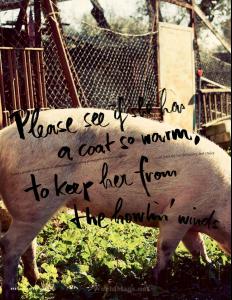 Please see if she has
a coat so warm,
to keep her from
the howlin' winds
WorldMags.net